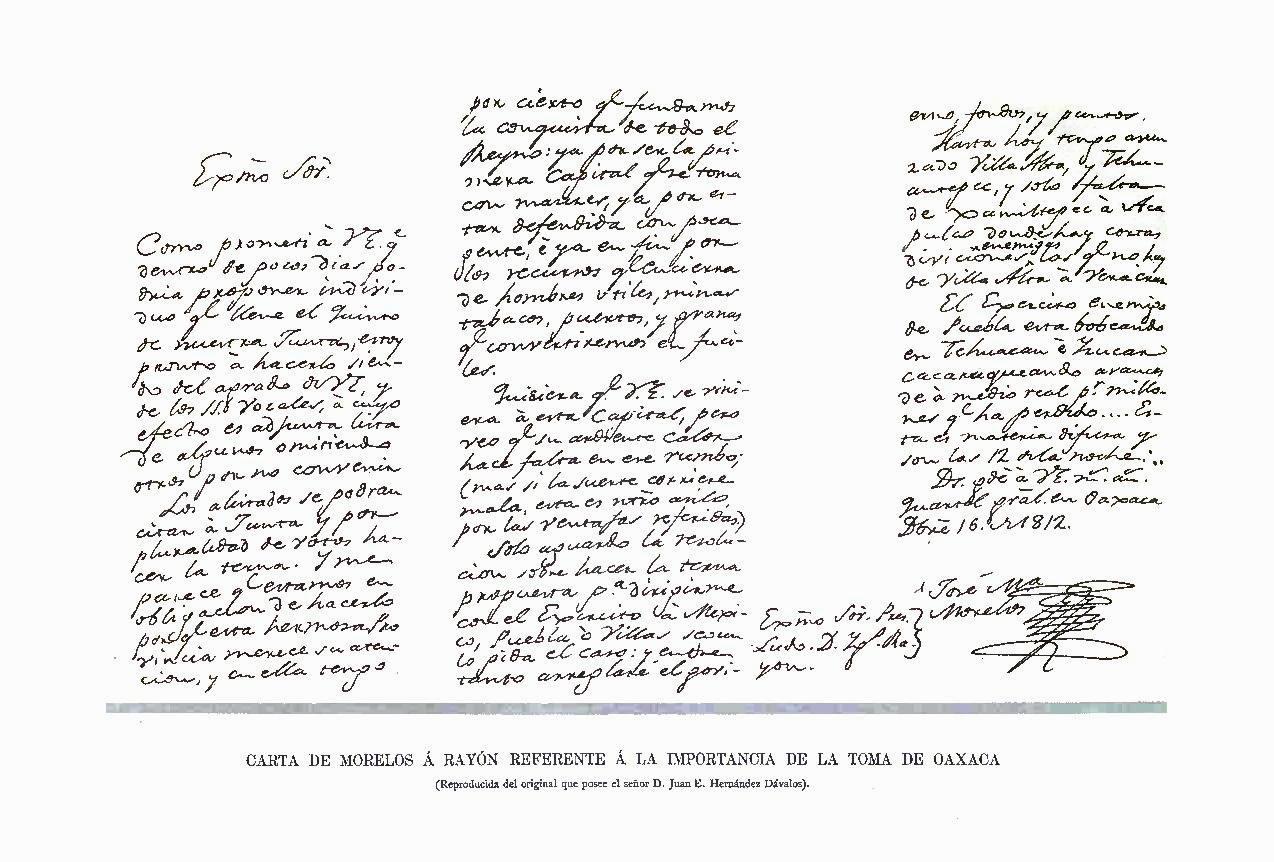 Exp̃mo Sõr.
Como prometi à V.E. q.ᵉ
dentro de pocos dias po-
dria proponer indivi-
duo q.ᵉ llene el Quinto
de nuestra Junta, estoy
pronto à hacerlo sien-
do del agrado de V.E. y
de los SS. Vocales, à cuyo
efecto es adjunta lista
de algunos omitiendo
otros por no convenir
Los alistados se podran
citar à Junta y por
pluralidad de votos ha-
cer la terna. Y me
parece q. estamos en
obligacion de hacerlo
porq.ᵉ esta hermosa Pro
vincia merece su aten-
cion, y en ella tengo
por cierto q.ᵉ fundamos
la conquista de todo el
Reyno: ya por ser la pri-
mera Capital q.ᵉ se toma
con
tar defendida con poca
gente, è ya en fin por
los recursos q.ᵉ encierra
de hombres utiles, minas
tabacos, puertos, y granas
q.ᵉ convertiremos en fuci-
les.
Quisiera q.ᵉ V.E. se vini-
era à esta Capital, pero
veo q.ᵉ su ardiente calor
hace falta en ese rumbo;
(mas si la suerte corriere
mala, esta es ntr̃o asilo
por las ventajas referidas)
Solo aguardo la resolu-
cion sobre hacer la terna
propuesta p.ᵃ dirigirme
con el Expercito à Mexi-
co, Puebla ò Villas segun
lo pida el caso: y entre
tanto arreglaré el govi-
erno, fondos, y puntos.
Hasta hoy tengo avan
zado Villa Alta, y Tehu-
antepec, y solo falta
de Xamiltepec à Aca
pulco donde hay cortas
diviciones enemigas las q.ᵉ no hay
de Villa Alta à Veracruz
El Expercito enemigo
de Puebla esta bobeando
en Tehuacan è Yzucar
cacaraqueando avances
de à medio real p.ʳ millo-
nes q.ᵉ ha perdido.... Es-
ta es materia difusa y
son las 12 de la noche
D.ˢ gde à V.E. m.ˢ añ.ˢ
Quartel gr̃al. en Oaxaca
Dbrẽ 16. de 1812.
José M.ᵃ
Morelos
Exp̃mo Sõr. Pres.
Licdo. D. Yg.º Ra-
yon.
CARTA DE MORELOS Á RAYÓN REFERENTE Á LA IMPORTANCIA DE LA TOMA DE OAXACA
(Reproducida del original que posee el señor D. Juan E. Hernández Dávalos).